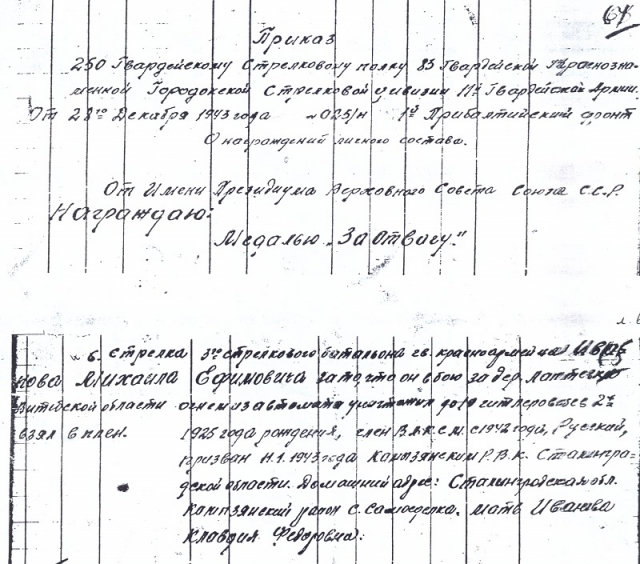 67
Приказ
250 Гвардейскому Стрелковому полку 83 Гвардейской Краснозна-
менной Городокской Стрелковой дивизии 11й Гвардейской Армии.
От 28го Декабря 1943 года №025/н 1й Прибалтийский фронт
О награждений личного состава.
От Имени Президиума Верховного Совета Союза С.С.Р.
Награждаю:
Медалью „За Отвагу."
6. Стрелка 3го стрелкового батальона гв. красноармейца Ива-
нова Михаила Ефимовича за то, что он в бою за дер.
Витебской области огнем из автомата уничтожил до 10 гитлеровцев 2х
взял в плен.
1925 года рождения, член В.Л.К.С.М. с 1942 года, Русский,
призван 1943 года Р.В.К. Сталингра-
дской области. Домашний адрес: Сталинградская обл.
район с. мать Иванова
Клавдия Федоровна.